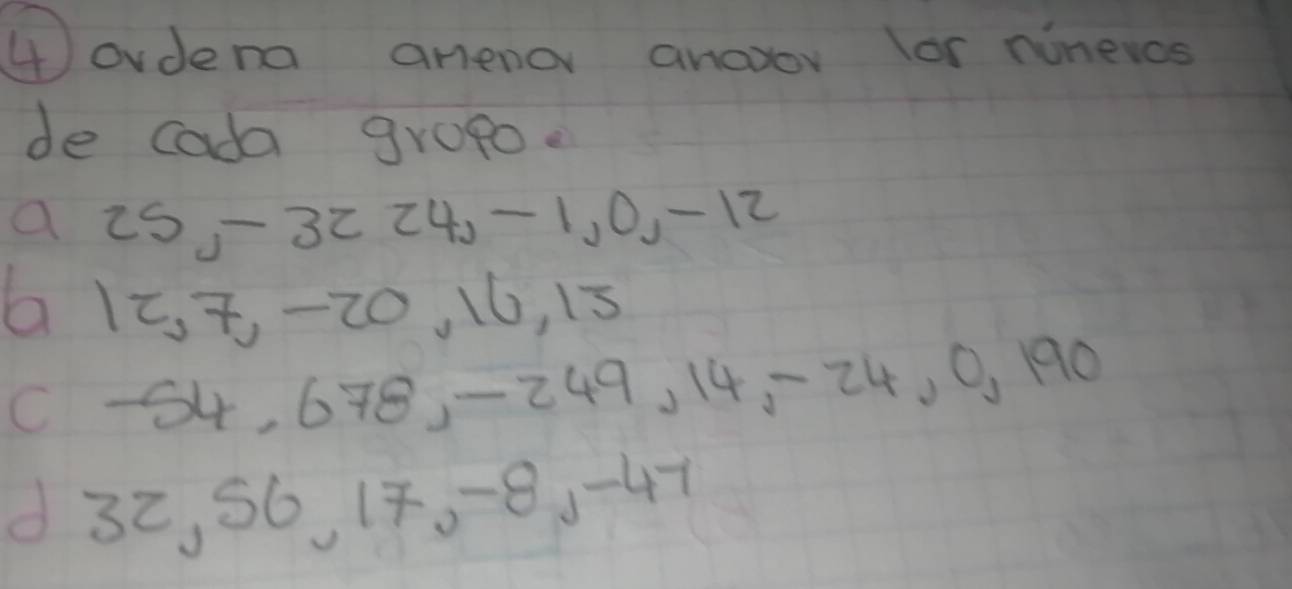 4 ordena amenor amayor los números
de cada grupo.
a 25, -32 24, -1, 0, -12
b 12, 7, -20, 16, 13
c -54, 678, -249, 14, -24, 0, 190
d 32, 56, 17, -8, -47